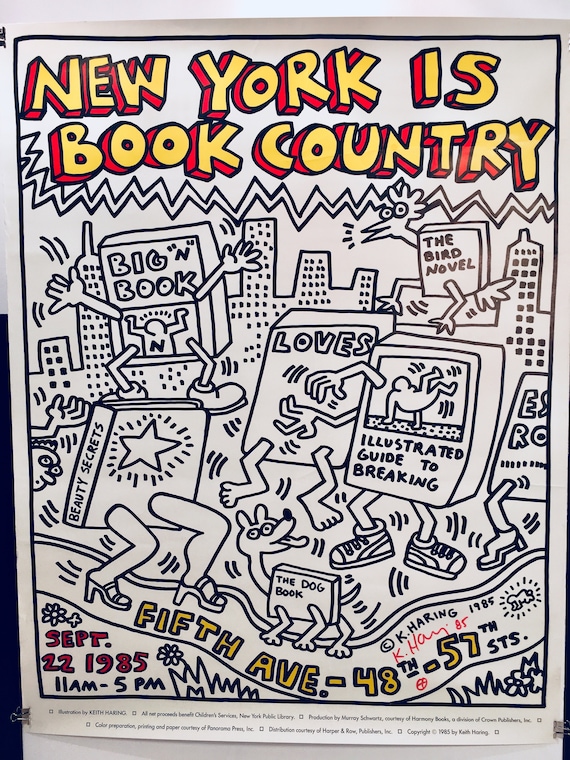 NEW YORK IS
BOOK COUNTRY
BIG "N"
BOOK
N
THE
BIRD
NOVEL
LOVES
ILLUSTRATED
GUIDE TO
BREAKING
ES
RO
BEAUTY SECRETS
THE DOG
BOOK
© K. HARING 1985
K. Haring 85
SEPT.
22 1985
11AM - 5 PM
FIFTH AVE. - 48TH - 57TH STS.
Illustration by KEITH HARING. All net proceeds benefit Children's Services, New York Public Library. Production by Murray Schwartz, courtesy of Harmony Books, a division of Crown Publishers, Inc.
Color preparation, printing and paper courtesy of Panorama Press, Inc. Distribution courtesy of Harper & Row, Publishers, Inc. Copyright © 1985 by Keith Haring.